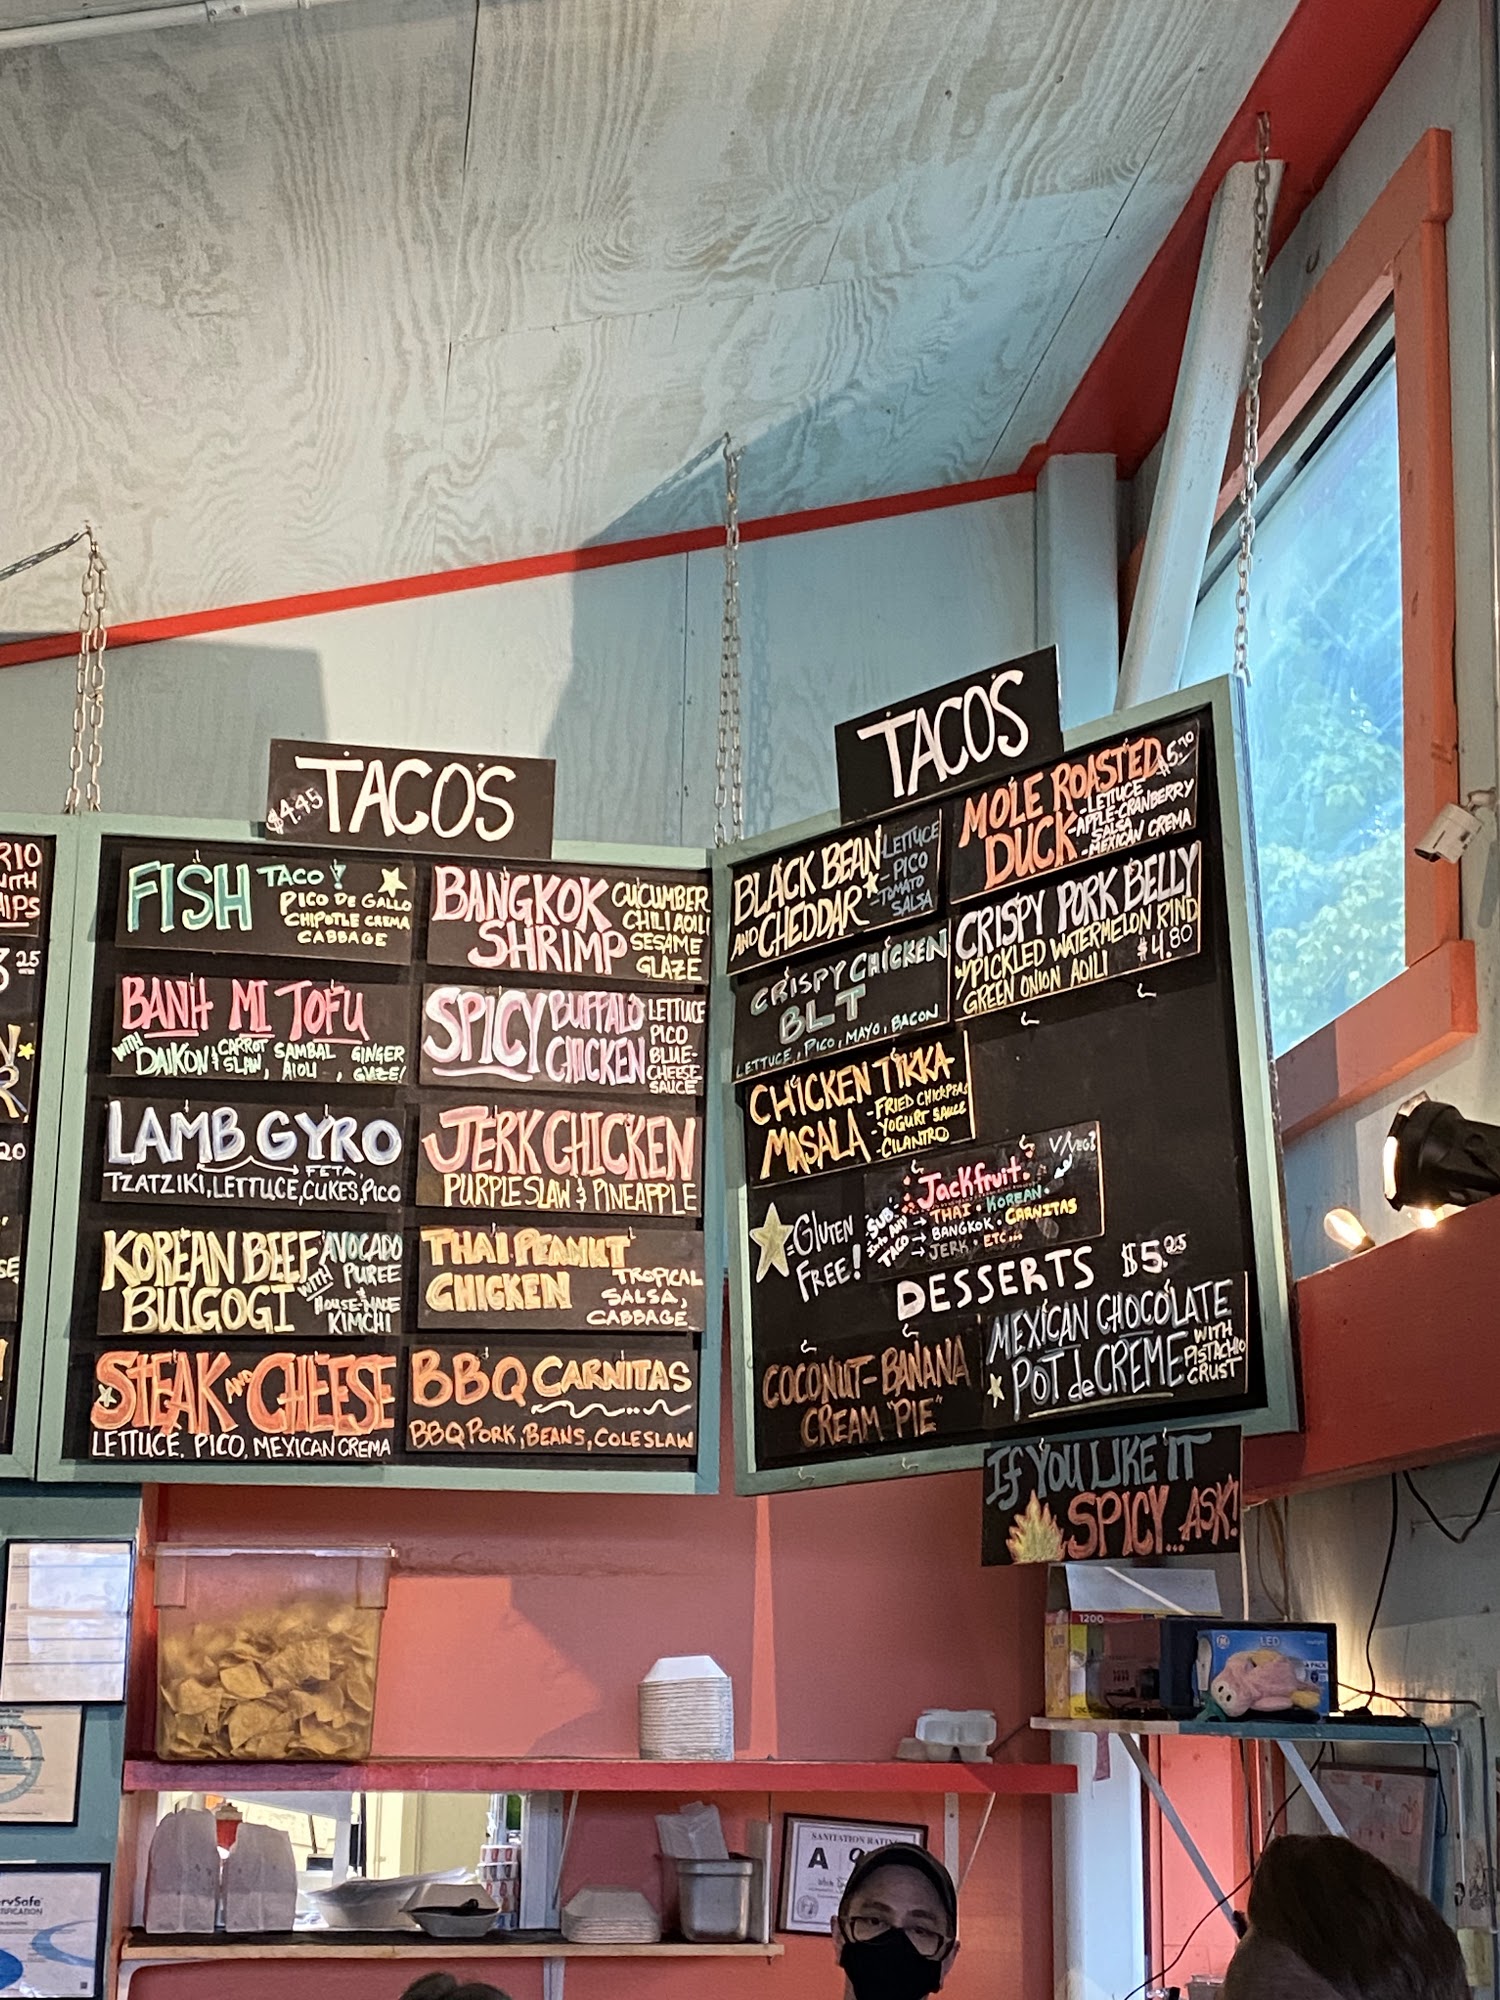 TACOS
$4.45
FISH TACO!
PICO DE GALLO
CHIPOTLE CREMA
CABBAGE
BANH MI TOFU
WITH DAIKON & CARROT SLAW, SAMBAL AIOLI, GINGER GLAZE!
LAMB GYRO
FETA,
TZATZIKI, LETTUCE, CUKES, PICO
KOREAN BEEF
BULGOGI
WITH
AVOCADO
PUREE
&
HOUSE-MADE
KIMCHI
STEAK AND CHEESE
LETTUCE, PICO, MEXICAN CREMA
BANGKOK
SHRIMP
CUCUMBER
CHILI AOILI
SESAME
GLAZE
SPICY BUFFALO
CHICKEN
LETTUCE
PICO
BLUE-
CHEESE
SAUCE
JERK CHICKEN
PURPLE SLAW & PINEAPPLE
THAI PEANUT
CHICKEN
TROPICAL
SALSA,
CABBAGE
BBQ CARNITAS
BBQ PORK, BEANS, COLESLAW
TACOS
BLACK BEAN
AND CHEDDAR
LETTUCE
- PICO
- TOMATO
SALSA
CRISPY CHICKEN
BLT
LETTUCE, PICO, MAYO, BACON
CHICKEN TIKKA
MASALA
- FRIED CHICKPEAS
- YOGURT SAUCE
- CILANTRO
MOLE ROASTED
DUCK
$5.70
- LETTUCE
- APPLE-CRANBERRY
SALSA
- MEXICAN CREMA
CRISPY PORK BELLY
W/PICKLED WATERMELON RIND
GREEN ONION AOILI
$4.80
= GLUTEN
FREE!
SUB
INTO ANY
TACO
Jackfruit
→ THAI • KOREAN •
→ BANGKOK • CARNITAS
→ JERK • ETC...
DESSERTS $5.25
COCONUT-BANANA
CREAM "PIE"
MEXICAN CHOCOLATE
POT de CREME
WITH
PISTACHIO
CRUST
IF YOU LIKE IT
SPICY... ASK!
RIO
ITH
IPS
25
20
1200
LED
SANITATION RATING
A
rvSafe
IFICATION